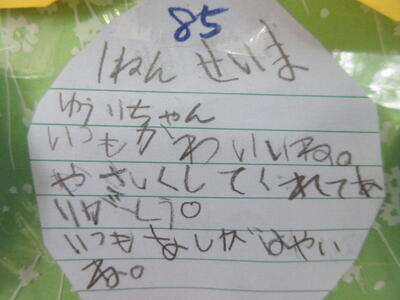 85
1ねん せいま
ゆうりちゃん
いつもかわいいね。
やさいくしてくれてあ
りがとう。
いつもあしがはやい
ね。